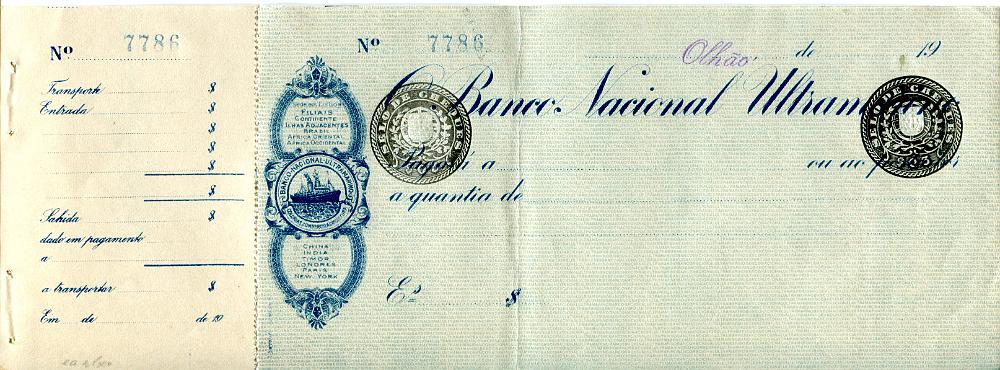 Nº 7786
Transporte $
Entrada $
$
$
$
$
Sahida $
dado em pagamento
a
a transportar $
Em de de 19
Nº 7786
Olhão, de 19
O Banco Nacional Ultramarino
Pagará a ou ao portador
a quantia de
E. $
SÉDE EM LISBOA
FILIAIS
CONTINENTE
ILHAS ADJACENTES
BRASIL
AFRICA ORIENTAL
AFRICA OCCIDENTAL
BANCO NACIONAL ULTRAMARINO
CHINA
INDIA
TIMOR
LONDRES
PARIS
NEW YORK
SELO DE CHEQUES
SELO DE CHEQUES